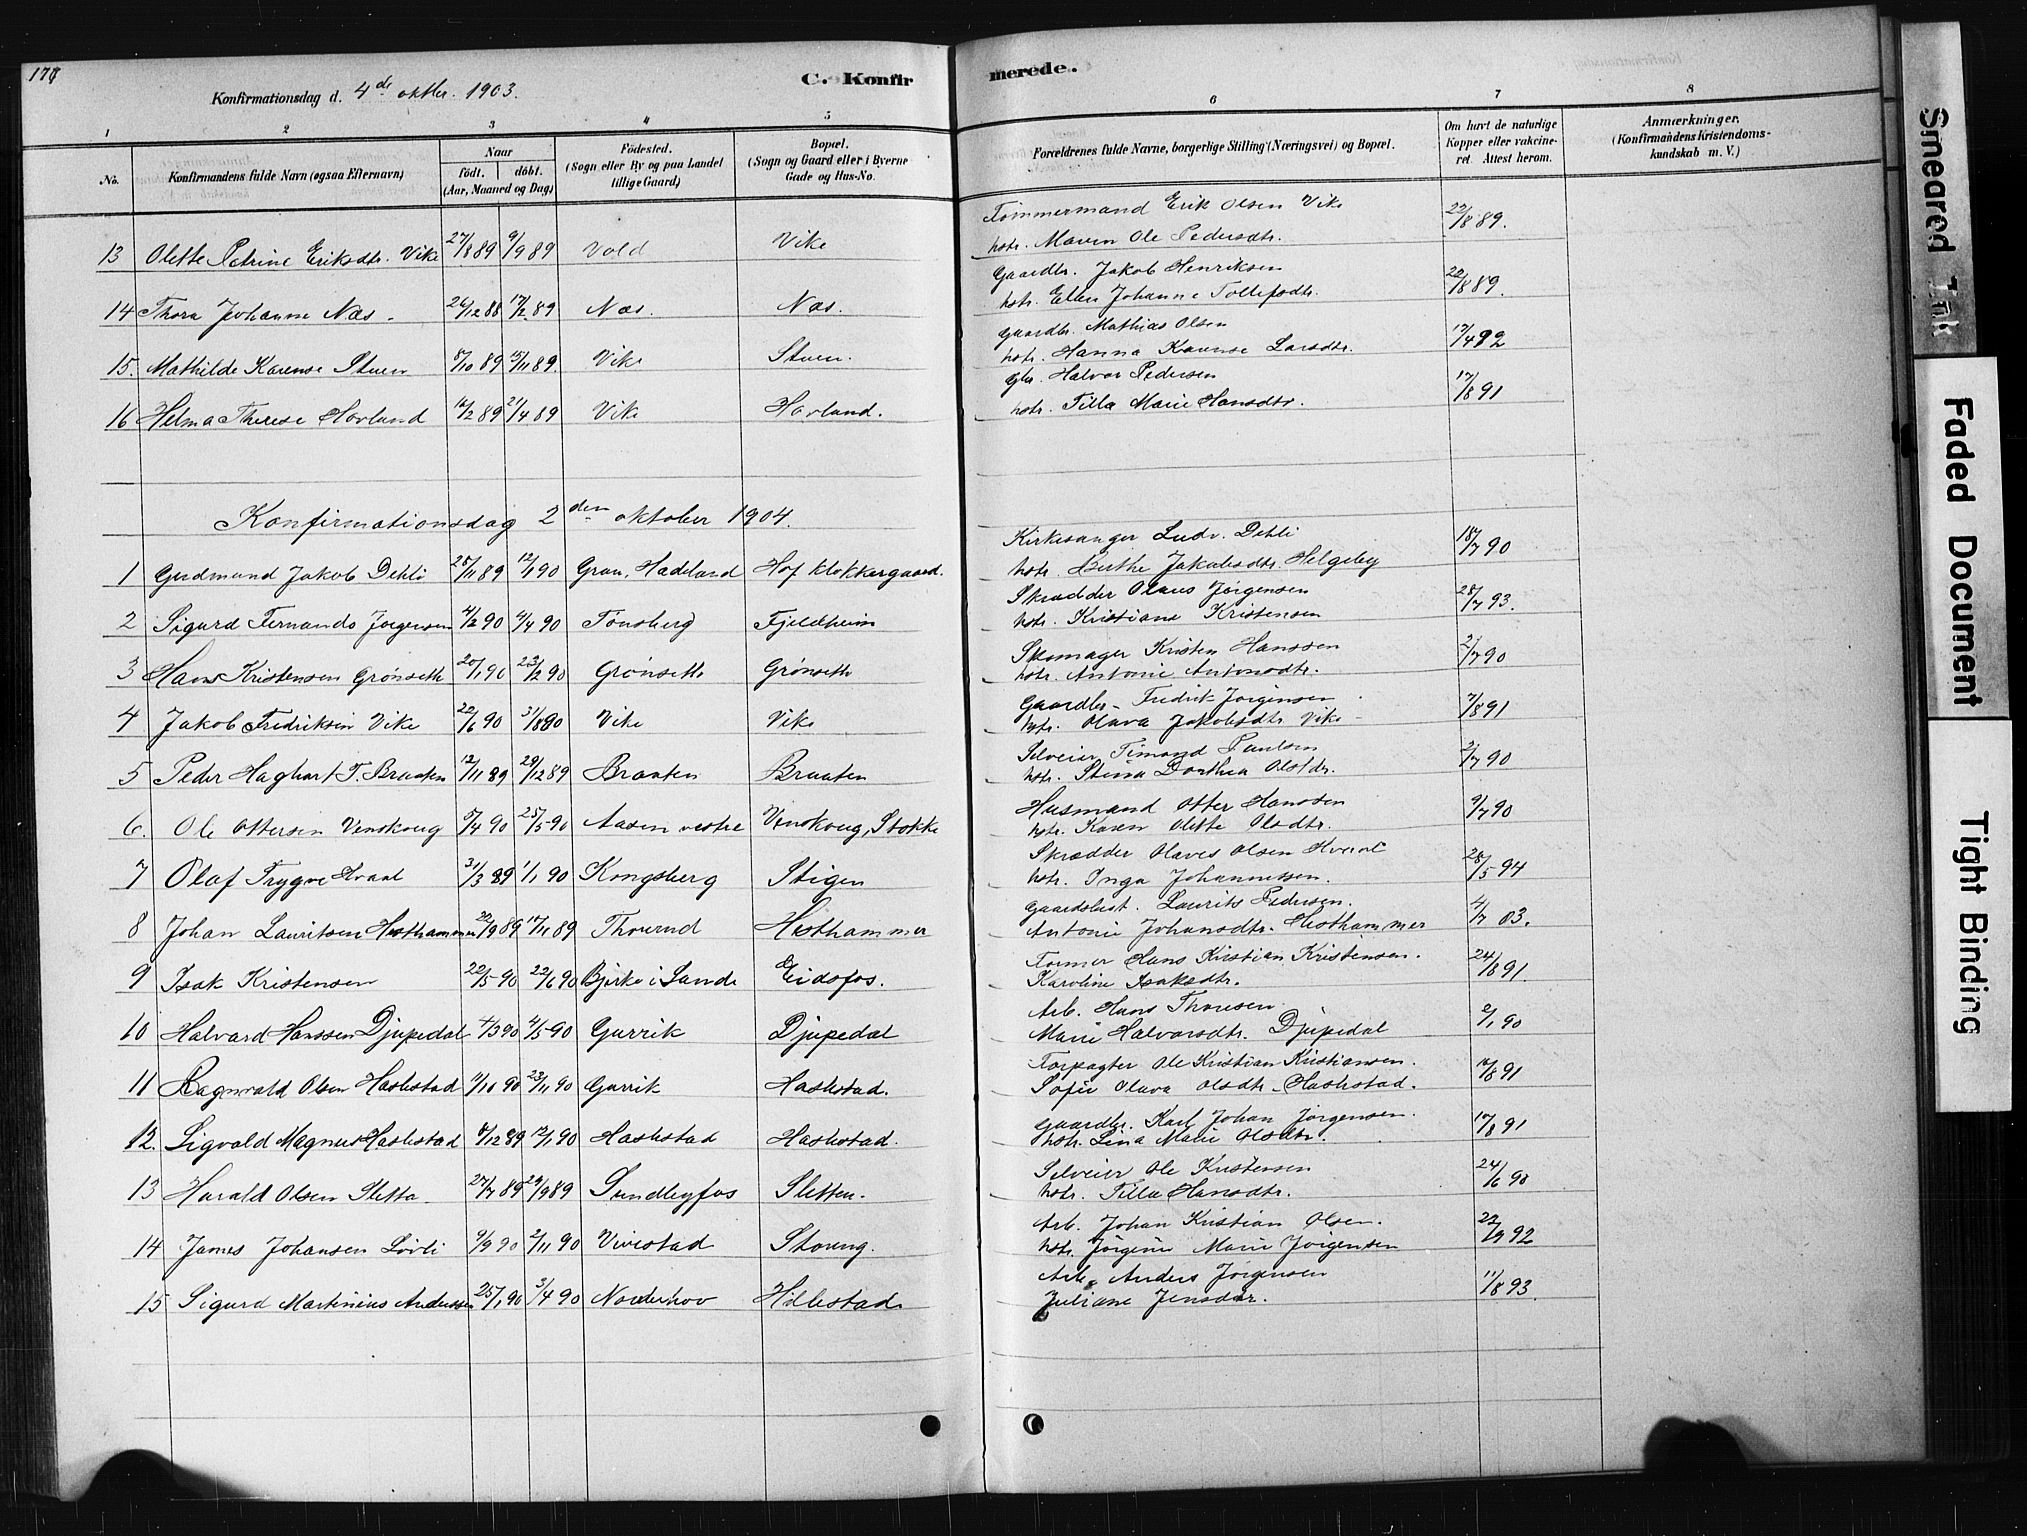 178
C. Konfirmerede.
Konfirmationsdag d. 4de oktbr. 1903.
1 2 3 4 5 6 7 8
No.
Konfirmandens fulde Navn (ogsaa Efternavn)
Naar
født. døbt.
(Aar, Maaned og Dag)
Fødested.
(Sogn eller By og paa Landet
tillige Gaard)
Bopæl.
(Sogn og Gaard eller i Byerne
Gade og Hus-No.
Forældrenes fulde Navne, borgerlige Stilling (Næringsvei) og Bopæl.
Om havt de naturlige
Kopper eller vakcine-
ret. Attest herom.
Anmærkninger.
(Konfirmandens Kristendoms-
kundskab m. V.)
13 Olette Petrine Eriksdtr. Vike 27/8 89 9/9 89 Vold Vike Tømmermand Erik Olsen Vike 22/8 89.
hstr. Maren Ole Pedersdtr.
14 Thora Johanne Næs. 26/12 88 17/2 89 Næs. Næs. Gaardbr. Jakob Henriksen 22/8 89.
hstr. Ellen Johanne Tollefsdtr.
15. Mathilde Karense Stuen 8/10 89 15/11 89. Vike Stuen. Gaardbr. Mathias Olsen 17/4 92
hstr. Hanna Karense Larsdtr.
16 Helma Therese Hovland 16/2 89 21/4 89 Vike Hovland. Gbr. Halvor Pedersen 17/8 91
hstr. Tilla Marie Hansdtr.
Konfirmationsdag 2den oktober 1904.
1 Gudmund Jakob Dehli 25/11 89 12/1 90 Gran, Hadeland Hof klokkergaard. Kirkesanger Ludv. Dehli 18/7 90
hstr. Berthe Jakobsdtr. Helgeby
2 Sigurd Fernando Jørgensen 4/2 90 4/4 90 Tønsberg Fjeldheim Skrædder Olaus Jørgensen 28/7 93.
hstr. Kristiane Kristensen
3 Hans Kristensen Grønseth 20/1 90 23/2 90 Grønseth Grønseth Skomager Kristen Hanssen 2/7 90
hstr. Antonie Antonsdtr.
4 Jakob Fredriksen Vike 22/6 90 31/8 90 Vike Vike Gaardbr. Fredrik Jørgensen 7/8 91
hstr. Olava Jakobsdtr. Vike
5 Peder Haghart T. Braaten 12/11 89 29/12 89 Braaten Braaten Selveier Timand Paulsen 2/7 90
hstr. Stina Dorthea Olsdtr.
6. Ole Ottersen Venskoug 8/4 90 25/5 90 Aasen vestre Venskoug, Stokke Husmand Otter Hanssen 9/7 90
hstr. Karen Olette Olsdtr.
7 Olaf Trygve Kvaal 31/3 89 1/1 90 Kongsberg Stigen Skrædder Olaves Olsen Kvaal 28/5 94
hstr. Inga Johannessen.
8 Johan Lauritsen Hesthammer 22/9 89 17/11 89 Thorrud Hesthammer Gaardsbest. Laurits Pedersen. 4/7 03.
Antonie Johansdtr. Hesthammer
9 Isak Kristensen 22/5 90 22/6 90 Bjerke i Sande Eidsfos. Former Hans Kristian Kristensen. 24/8 91
Karoline Isaksdtr.
10 Halvard Hanssen Djupedal 4/3 90 4/5 90 Gurrik Djupedal Arb. Hans Thoresen 2/1 90
Marie Halvorsdtr. Djupedal
11 Ragnvald Olsen Haslestad 11/10 90 23/11 90 Gurrik Haslestad. Forpagter Ole Kristian Kristiansen. 14/8 91
Sofie Olava Olsdtr. Haslestad.
12. Sigvald Magnus Haslestad 8/12 89 12/1 90 Haslestad Haslestad. Gaardbr. Karl Johan Jørgensen. 10/8 91
hstr. Lina Marie Olsdtr.
13 Harald Olsen Sletta 27/7 89 29/9 89 Sundbyfos Sletten. Selveier Ole Kristensen 24/6 90
hstr. Tilla Hansdtr.
14 James Johansen Løvli 9/9 90 2/11 90 Vivestad Storeng. Arb. Johan Kristian Olsen. 22/9 92
hstr. Jørgine Marie Jørgensen
15 Sigurd Martinius Anderssen 25/1 90 3/4 90 Norderhov Hillestad. Arb. Anders Jørgensen 11/8 93.
Juliane Jensdtr.
Smeared Ink
Faded Document
Tight Binding